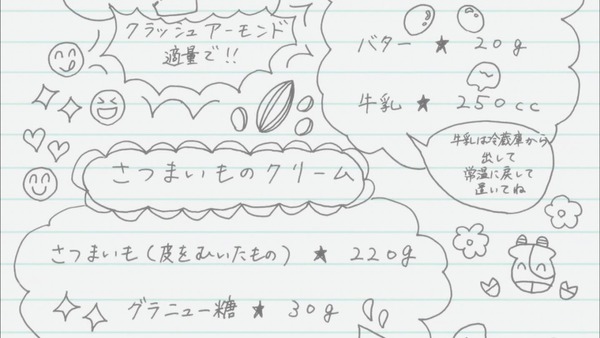 クラッシュアーモンド
適量で!!
バター ★ 20g
牛乳 ★ 250cc
牛乳は冷蔵庫から
出して
常温に戻して
置いてね
さつまいものクリーム
さつまいも(皮をむいたもの) ★ 220g
グラニュー糖 ★ 30g